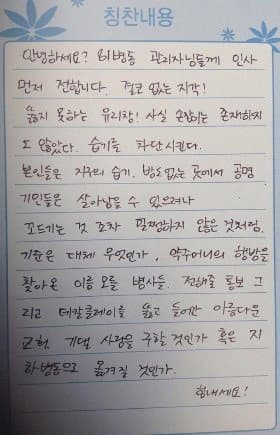 칭찬내용
안녕하세요? 81병동 관리자님들께 인사
먼저 전합니다. 결코 없는 지각!
뚫지 못하는 유리창! 사실 손잡이는 존재하지
도 않았다. 습기를 차단시킨다.
본인들은 자주의 습기. 밤도없는 곳에서 공명
기인들은 살아남을 수 있으려나
꼬드기는 것 조차 멀쩡하지 않은 것처럼.
기준은 대체 무엇인가, 약주머니의 행방을
찾아온 이름 모를 병사들. 전해줄 통보 그
리고 데칼클레이를 뚫고 들어간 아름다운
교회, 기댈 사랑을 구할 것인가 혹은 지
하병동으로 옮겨질 것인가.
힘내세요!